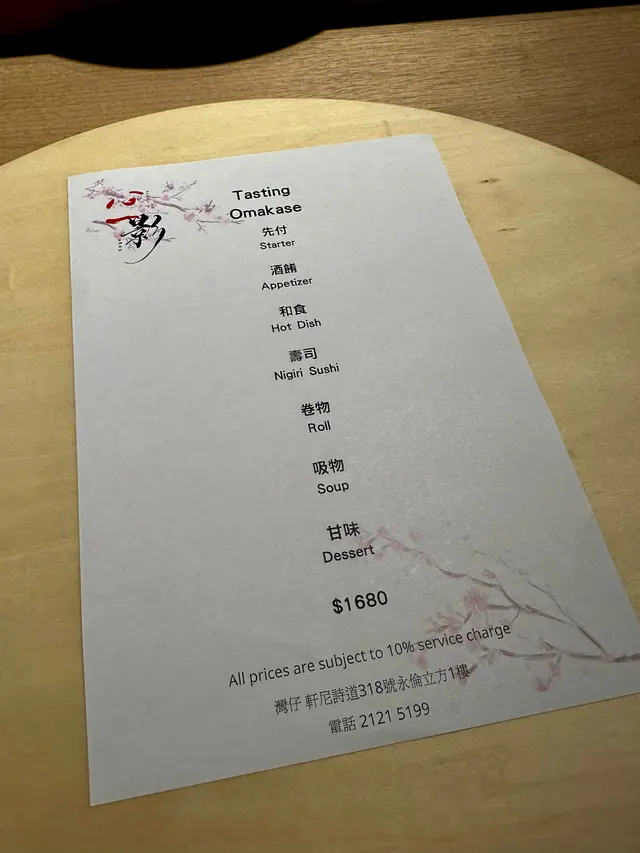 心一影
Tasting
Omakase
先付
Starter
酒餚
Appetizer
和食
Hot Dish
壽司
Nigiri Sushi
卷物
Roll
吸物
Soup
甘味
Dessert
$1680
All prices are subject to 10% service charge
灣仔 軒尼詩道318號永倫立方1樓
電話 2121 5199